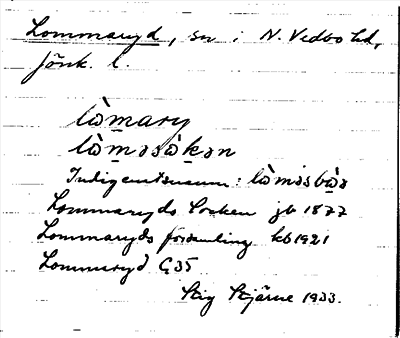 Lommaryd, sn i N. Vedbo hd,
Jönk. l.
lò̱mary
lò̱məsò̱kən
Indigentsnamn: lò̱məsbò̱ə
Lommaryds Socken jb 1877
Lommaryds församling kb 1921
Lommaryd G35
Stig Stjärne 1933.